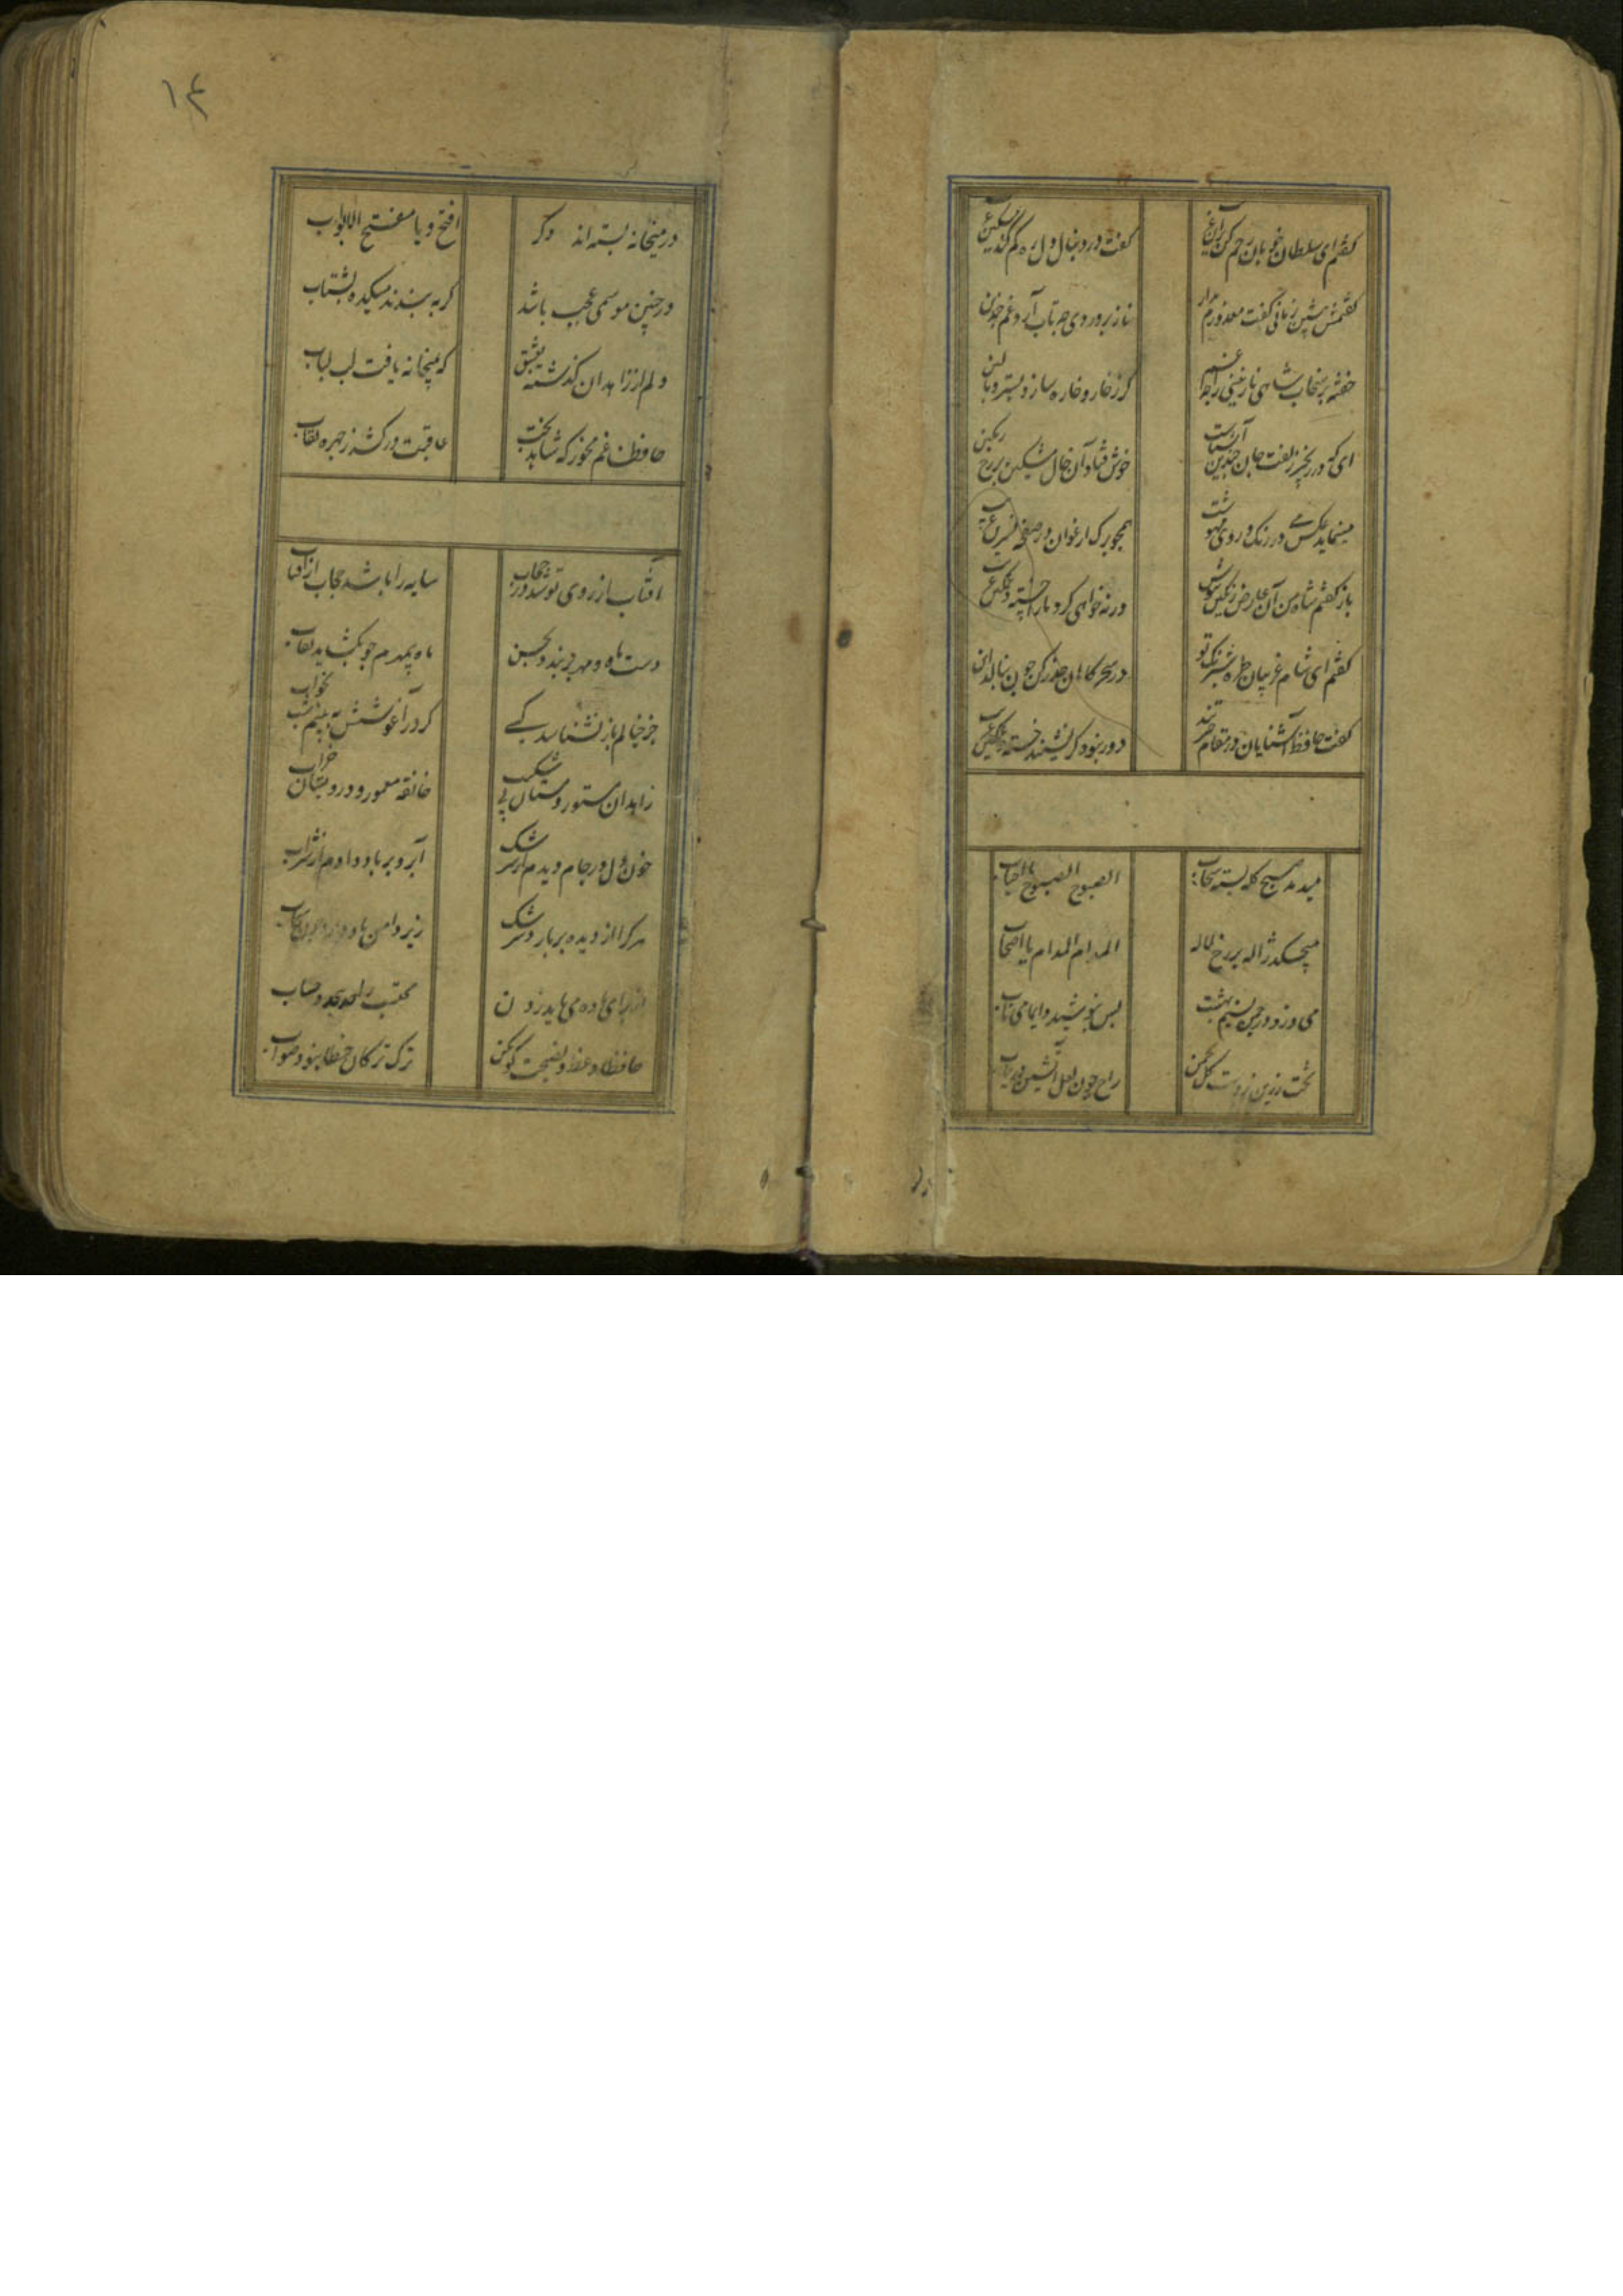 گفتم ای سلطان خوبان رحم کن برین غریب گفت در دنبال دل ره گم کند مسکین غریب
گفتمش بنشین زمانی گفت معذورم بدار نازپروردی چه تاب آرد غم چندین
خفته بر سنجاب شاهی نازنینی را چه غم گر ز خار و خاره سازد بستر و بالین
ای که در زنجیر زلفت جان چندین آشناست خوش فتاد آن خال مشکین بر رخ رنگین
مینماید عکس می در رنگ روی مهوشت همچو برگ ارغوان در صفحه نسرین غریب
باز گفتم شاه من آن عارض رنگین بپوش ورنه خواهی کرد ما را خسته و غمگین غریب
گفتم ای شام غریبان طره شبرنگ تو در سحرگاهان حذر کن چون بنالد این
گفت حافظ آشنایان در مقام حیرتند دور نبود گر نشیند خسته و غمگین غریب
میدمد صبح کله بسته سحاب الصبوح الصبوح یا احباب
میچکد ژاله بر رخ لاله المدام المدام یا اصحاب
می وزد در چمن نسیم بهشت بس بنوشید دایما می ناب
تخت زرین زدست گل بچمن راح چون لعل آتشین دریاب
۱۴
در میخانه بسته اند دگر افتح ویا مفتح الابواب
در چنین موسمی عجب باشد که به بندند میکده بشتاب
دلم از زاهدان گذشته بعشق که میخانه یافت لب لباب
حافظا غم مخور که شاهد بخت عاقبت درکشد ز چهره نقاب
آفتاب از روی تو شد در حجاب سایه را باشد حجاب از آفتاب
دست ماه و مهر بربندد بحسن ماه بیمهرم چو بگشاید نقاب
جز خیالم باز نشناسد کسی گر در آغوشش به بینم شب بخواب
زاهدان مستور و مستان بی شکیب خانقه معمور و درویشان خراب
خون دل در جام دیدم از سرشک آبرو بر باد دادم از شراب
هرکرا از دیده بر بارد سرشک زیر دامن باد دارد چون
حافظا وعظ و نصیحت گو مکن ترک ترکان خطا نبود صواب